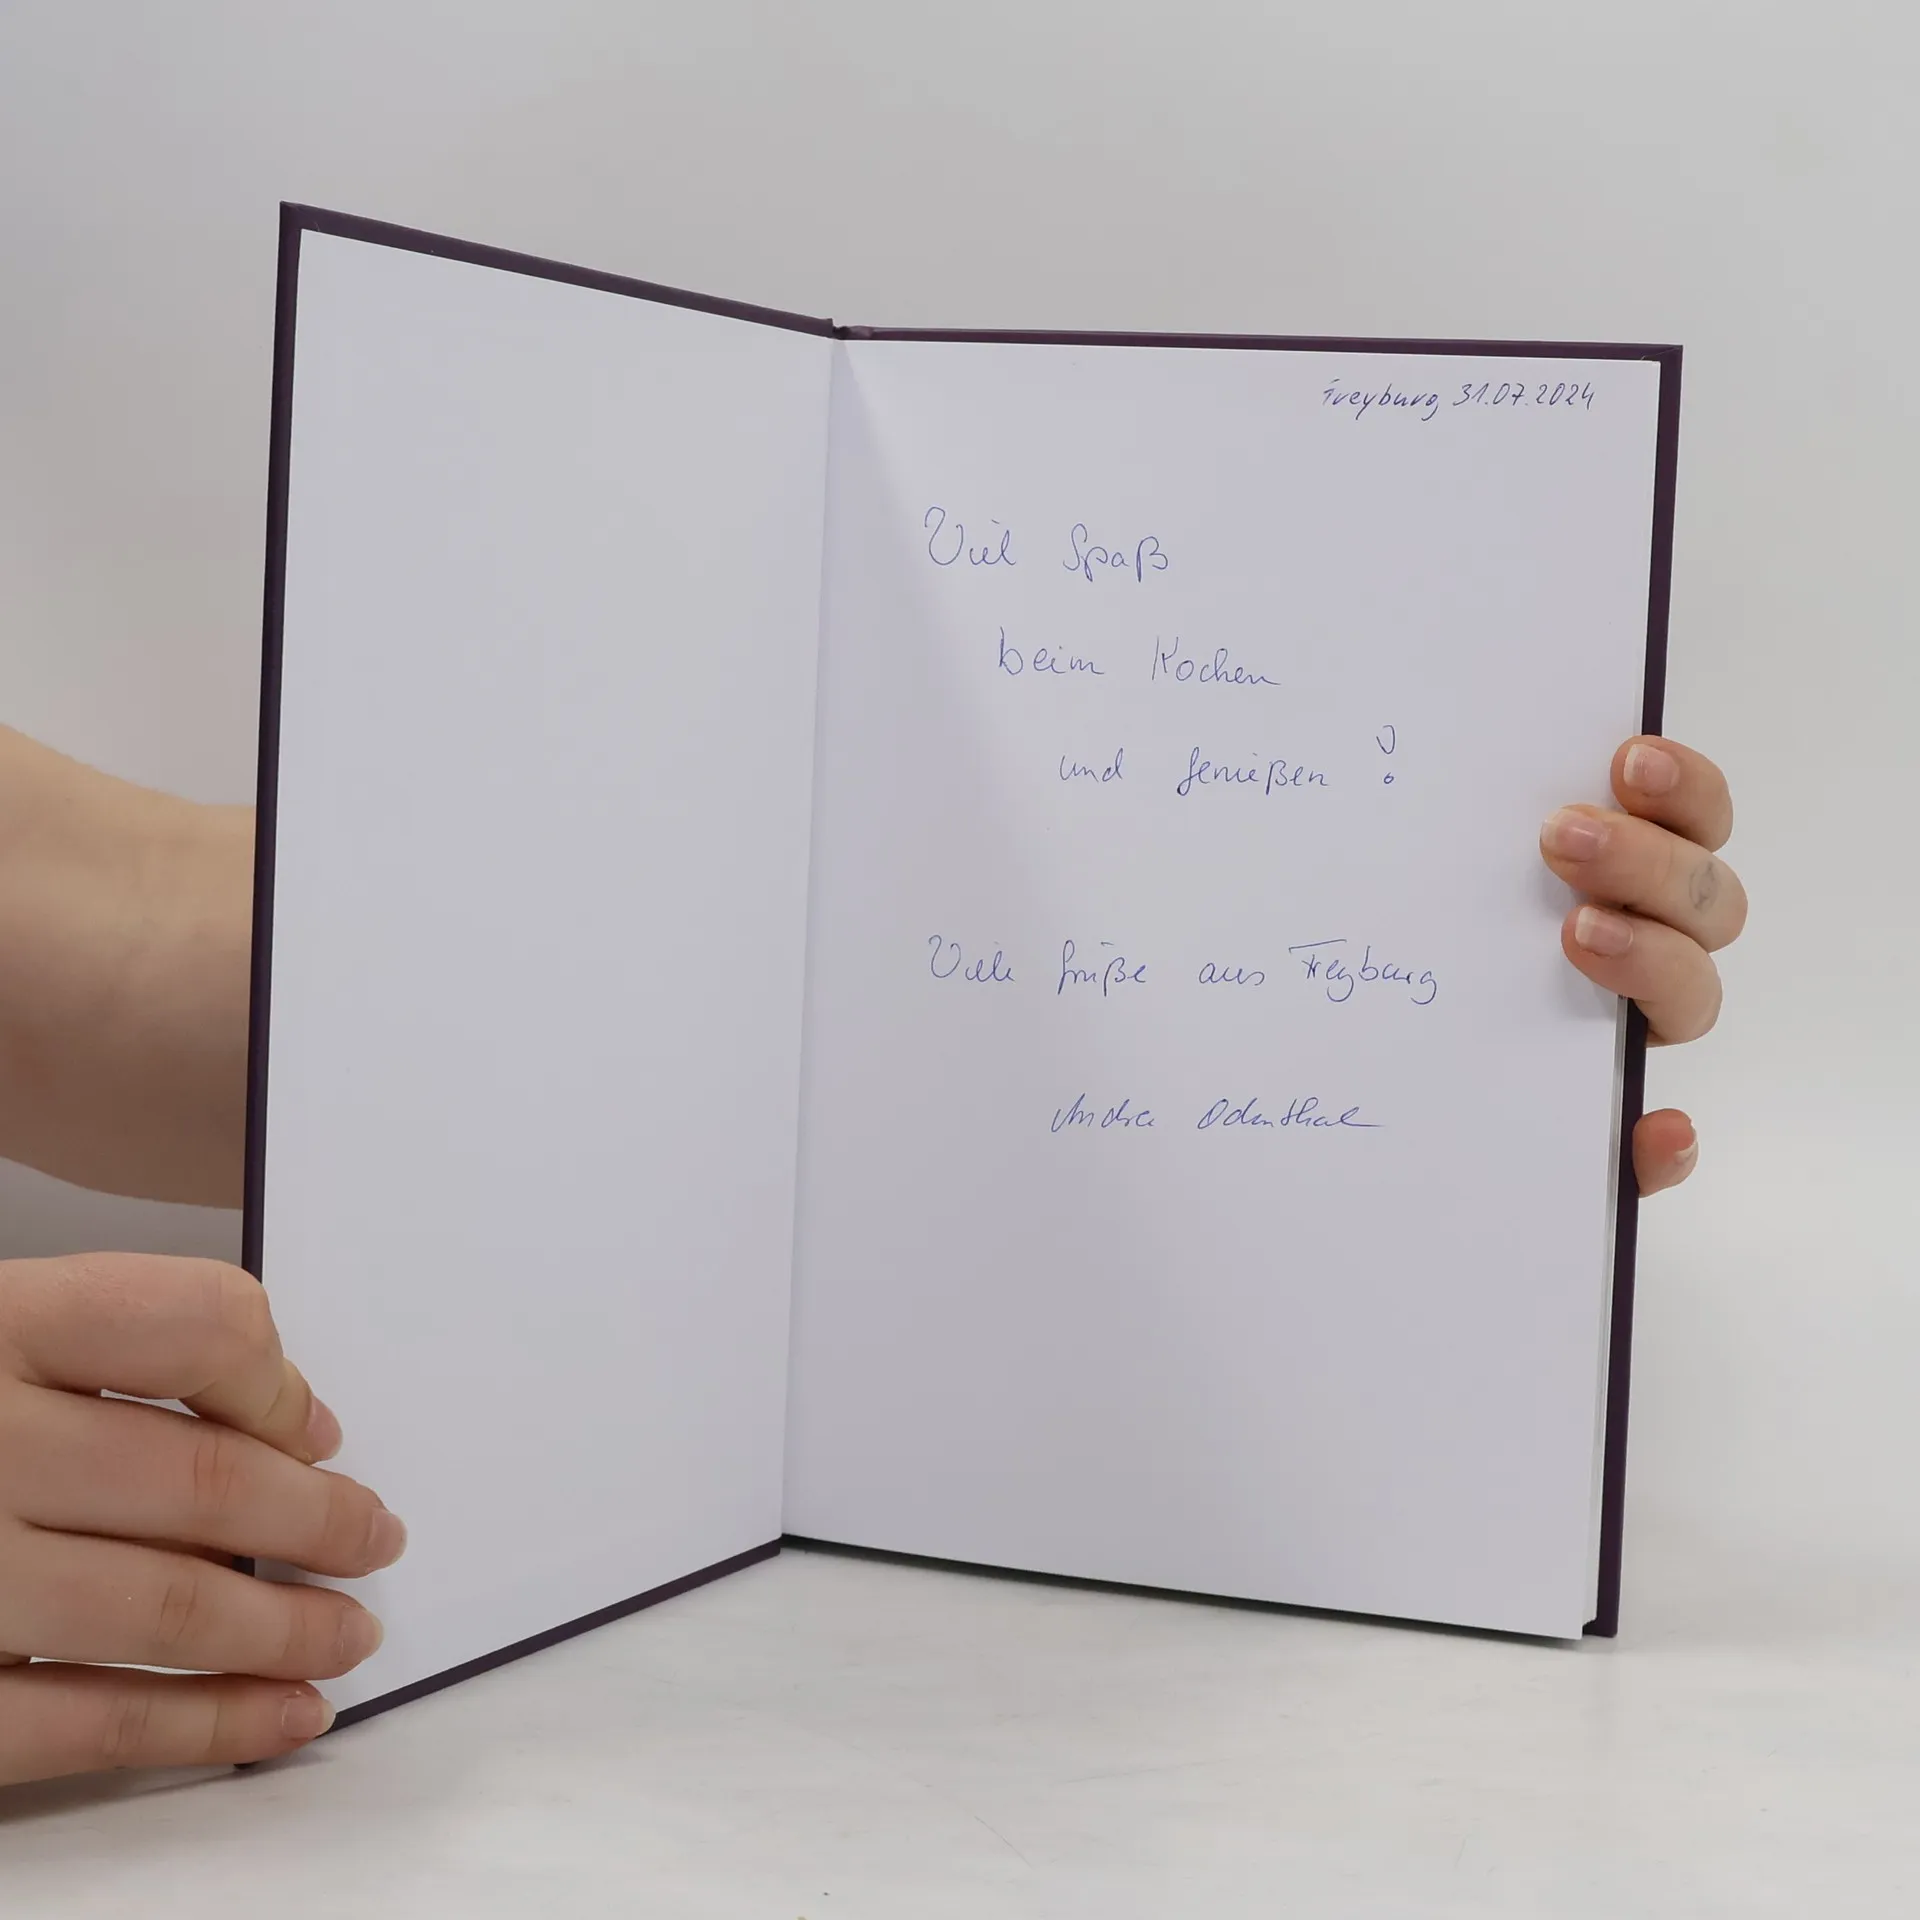 Freyburg, 31.07.2024
Viel Spaß
beim Kochen
und Genießen !
Viele Grüße aus Freyburg
Andrea Odenthal